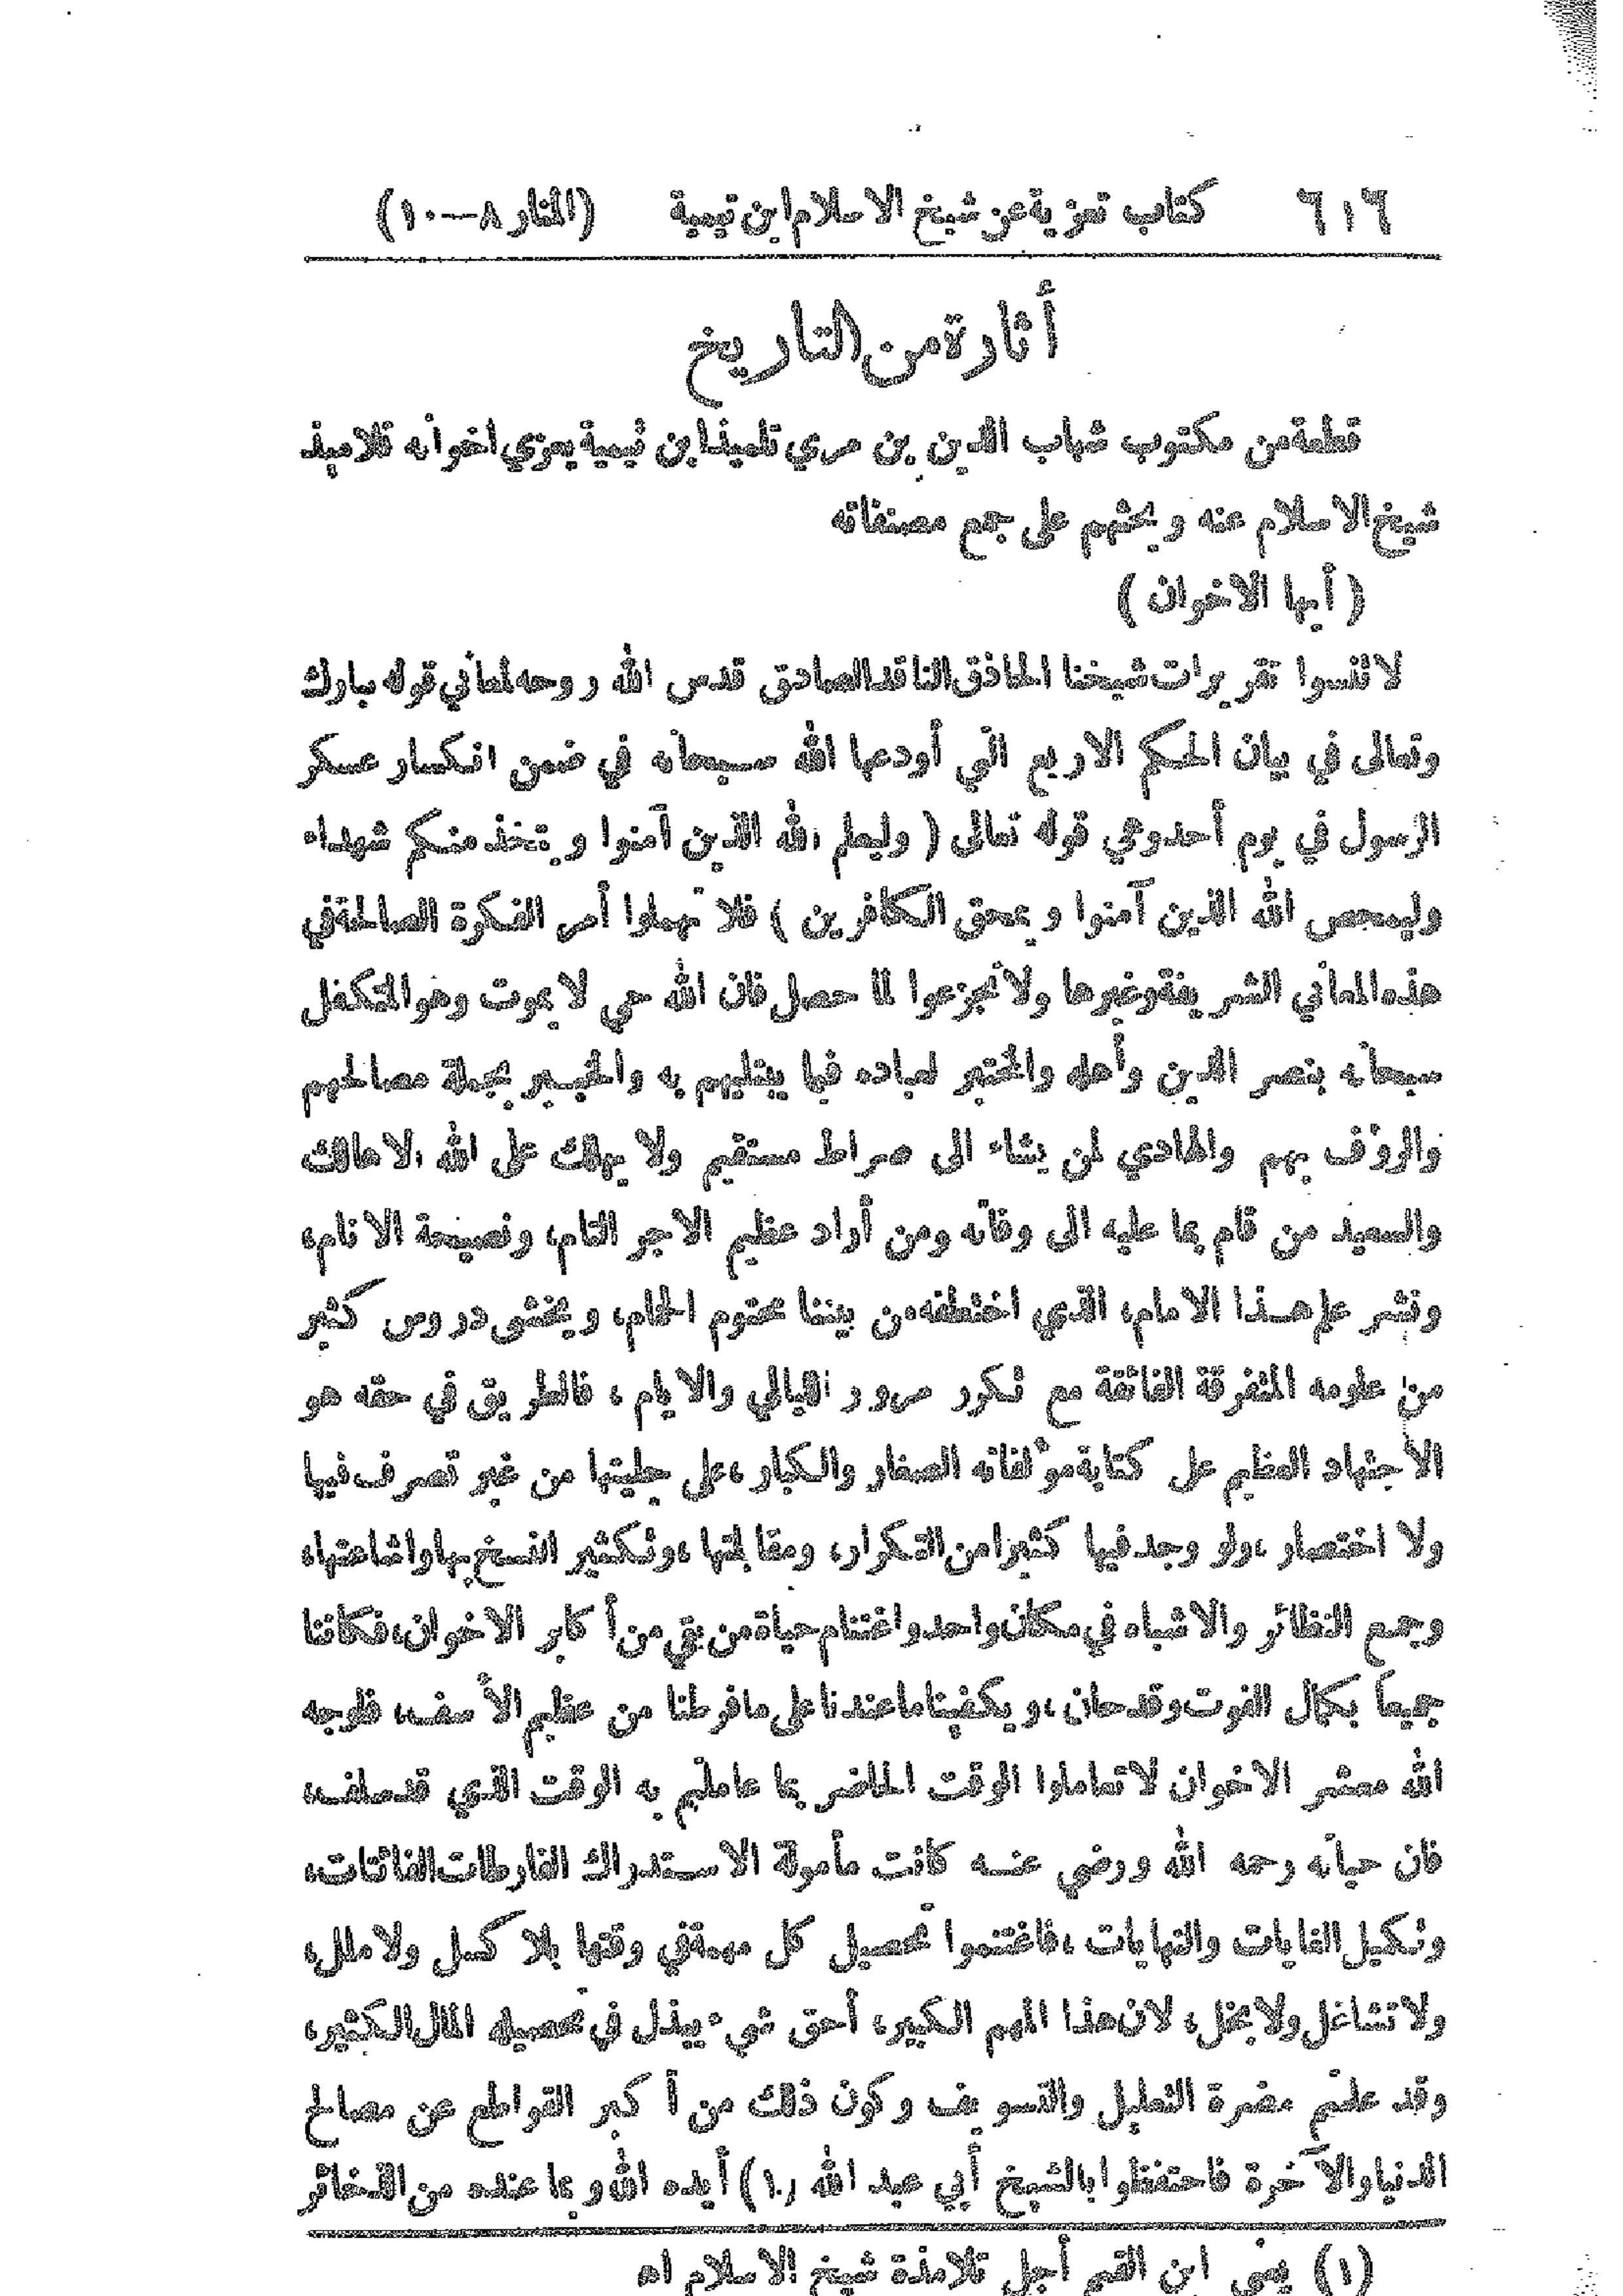 ٦١٦ كتاب تعزية عن شيخ الاسلام ابن تيمية (المنار ٨—١٠)
أثارة من التاريخ
قطعة من مكتوب شهاب الدين بن مري تلميذ ابن تيمية يعزي اخوانه تلاميذ
شيخ الاسلام عنه ويحثهم على جمع مصنفاته
( أيها الاخوان )
لا تنسوا تقريرات شيخنا الحاذق الناقد الصادق قدس الله روحه لمعاني قوله تبارك
وتعالى في بيان الحكم الاربع التي أودعها الله سبحانه في ضمن انكسار عسكر
الرسول في يوم أحد وهي قوله تعالى ( وليعلم الله الذين آمنوا ويتخذ منكم شهداء
وليمحص الله الذين آمنوا ويمحق الكافرين ) فلا تهملوا أمر الفكرة الصالحة في
هذه المعاني الشريفة وغيرها ولا تجزعوا لما حصل فان الله حي لا يموت وهو المتكفل
سبحانه بنصر الدين وأهله والمختبر لعباده فيما يبتليهم به والخبير بجملة مصالحهم
والرؤف بهم والهادي لمن يشاء الى صراط مستقيم ولا يهلك على الله الا هالك
والسعيد من قام بما عليه الى وفاته ومن أراد عظيم الاجر التام، ونصيحة الانام،
ونشر علم هذا الامام، الذي اختطفه من بيننا محتوم الحمام، ويخشى دروس كثير
من علومه المتفرقة الفائقة مع تكرر مرور الليالي والايام، فالطريق في حقه هو
الاجتهاد العظيم على كتابة مؤلفاته الصغار والكبار، على جليتها من غير تصرف فيها
ولا اختصار، ولو وجد فيها كثيرا من التكرار، ومقابلتها، وتكثير النسخ بها واشاعتها،
وجمع النظائر والاشباه في مكان واحد واغتنام حياة من بقي من أكابر الاخوان، فكأننا
جميعاً بكمال الفوت وقد حان، ويكفينا ما عندنا على ما فرطنا من عظيم الأسف، فلوجه
الله معشر الاخوان لا تعاملوا الوقت الحاضر بما عاملتم به الوقت الذي قد سلف،
فان حياته رحمه الله ورضي عنه كانت مأمولة الاستدراك الفارطات الفائتات،
وتكميل الغايات والنهايات، فاغتنموا تحصيل كل مهمة في وقتها بلا كسل ولا ملل،
ولا تشاغل ولا بخل، لان هذا المهم الكبير، أحق شيء يبذل في تحصيله المال الكثير،
وقد علمتم مضرة التعليل والتسويف وكون ذلك من أكبر القواطع عن مصالح
الدنيا والآخرة فاحتفظوا بالشيخ أبي عبد الله (١) أيده الله وبما عنده من الذخائر
(١) يعني ابن القيم أجل تلامذة شيخ الاسلام اه